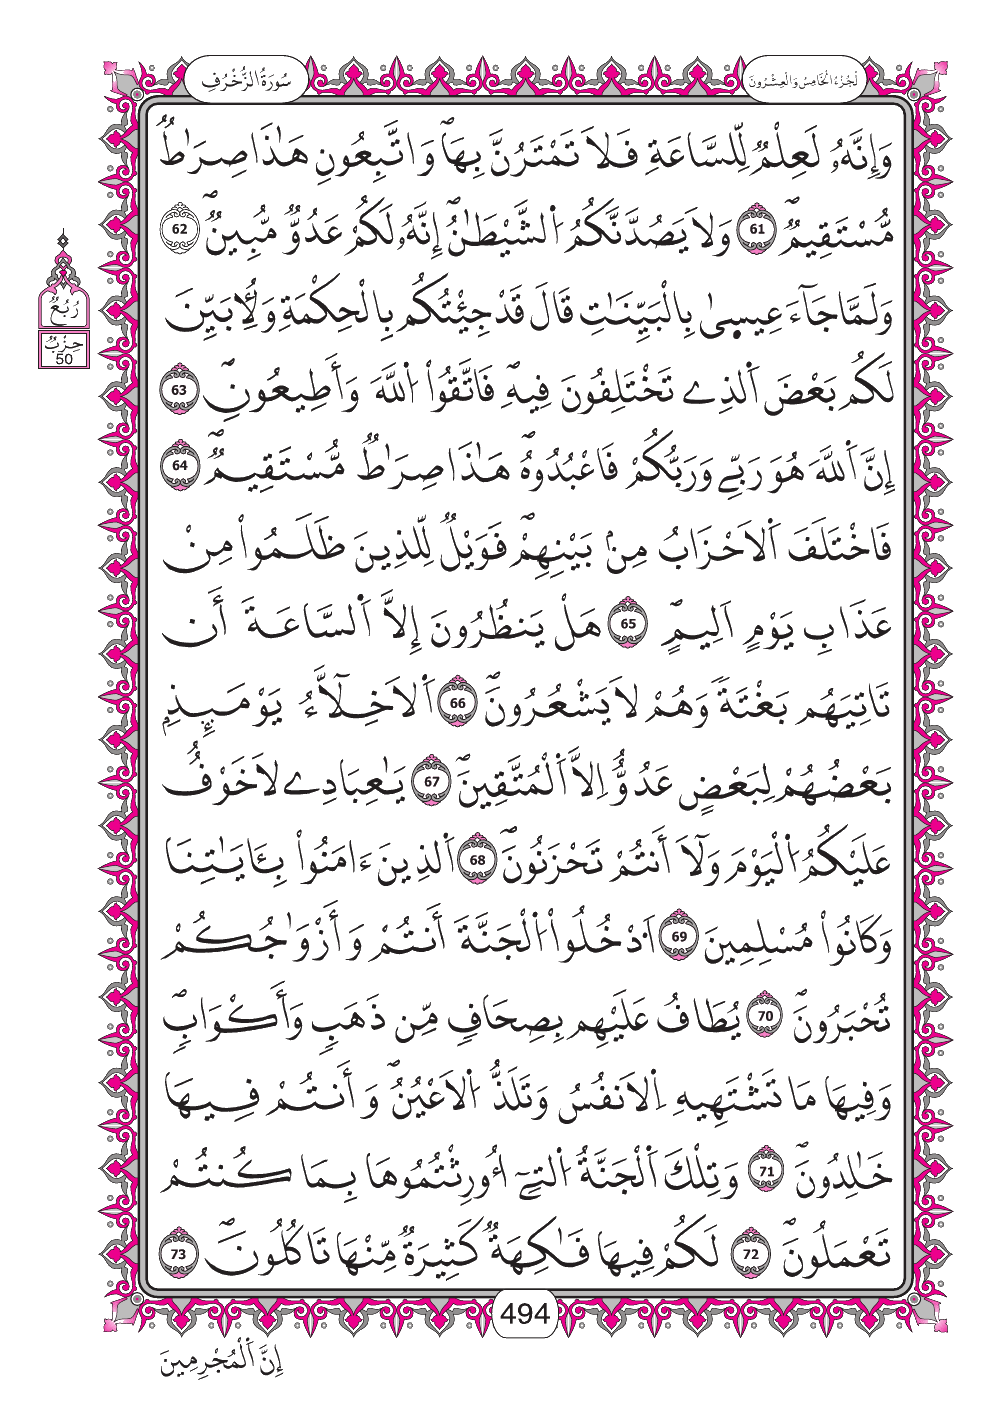 لَجُزْءُ الْخَامِسُ وَالْعِشْرُونَ
سُورَةُ الزُّخْرُفِ
وَإِنَّهُۥ لَعِلْمٌ لِّلسَّاعَةِ فَلَا تَمْتَرُنَّ بِهَاۖ وَاتَّبِعُونِ هَٰذَا صِرَٰطٌ
مُّسْتَقِيمٌۖ 61 وَلَا يَصُدَّنَّكُمُ اَ۬لشَّيْطَٰنُۖ إِنَّهُۥ لَكُمْ عَدُوٌّ مُّبِينٌۖ 62
وَلَمَّا جَآءَ عِيسِىٰ بِالْبَيِّنَٰتِ قَالَ قَدْ جِئْتُكُم بِالْحِكْمَةِ وَلِأُبَيِّنَ
لَكُم بَعْضَ اَ۬لذِے تَخْتَلِفُونَ فِيهِۖ فَاتَّقُوا۟ اُ۬للَّهَ وَأَطِيعُونِۖ 63
إِنَّ اَ۬للَّهَ هُوَ رَبِّے وَرَبُّكُمْ فَاعْبُدُوهُۖ هَٰذَا صِرَٰطٌ مُّسْتَقِيمٌۖ 64
فَاخْتَلَفَ اَ۬لَاحْزَابُ مِنۢ بَيْنِهِمْۖ فَوَيْلٌ لِّلذِينَ ظَلَمُوا۟ مِنْ
عَذَابِ يَوْمٍ اَلِيمٍۖ 65 هَلْ يَنظُرُونَ إِلَّا اَ۬لسَّاعَةَ أَن
تَاتِيَهُم بَغْتَةً وَهُمْ لَا يَشْعُرُونَۖ 66 اَ۬لَاخِلَّآءُ يَوْمَئِذِۢ
بَعْضُهُمْ لِبَعْضٍ عَدُوٌّ اِلَّا اَ۬لْمُتَّقِينَۖ 67 يَٰعِبَادِے لَا خَوْفٌ
عَلَيْكُمُ اُ۬لْيَوْمَ وَلَآ أَنتُمْ تَحْزَنُونَۖ 68 اَ۬لذِينَ ءَامَنُوا۟ بِـَٔايَٰتِنَا
وَكَانُوا۟ مُسْلِمِينَ 69 اَ۟دْخُلُوا۟ اُ۬لْجَنَّةَ أَنتُمْ وَأَزْوَٰجُكُمْ
تُحْبَرُونَۖ 70 يُطَافُ عَلَيْهِم بِصِحَافٍ مِّن ذَهَبٍ وَأَكْوَابٍۖ
وَفِيهَا مَا تَشْتَهِيهِ اِ۬لَانفُسُ وَتَلَذُّ اُ۬لَاعْيُنُۖ وَأَنتُمْ فِيهَا
خَٰلِدُونَۖ 71 وَتِلْكَ اَ۬لْجَنَّةُ اُ۬لتِےٓ أُورِثْتُمُوهَا بِمَا كُنتُمْ
تَعْمَلُونَۖ 72 لَكُمْ فِيهَا فَٰكِهَةٌ كَثِيرَةٌ مِّنْهَا تَاكُلُونَۖ 73
رُبُعُ
حِزْبٌ
50
494
إِنَّ اَ۬لْمُجْرِمِينَ